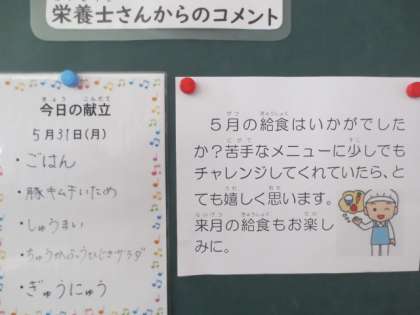 栄養士さんからのコメント
今日の献立
5月31日(月)
・ごはん
・豚キムチいため
・しゅうまい
・ちゅうかふうひじきサラダ
・ぎゅうにゅう
５月の給食はいかがでした
か？苦手なメニューに少しでも
チャレンジしてくれていたら、と
ても嬉しく思います。
来月の給食もお楽し
みに。